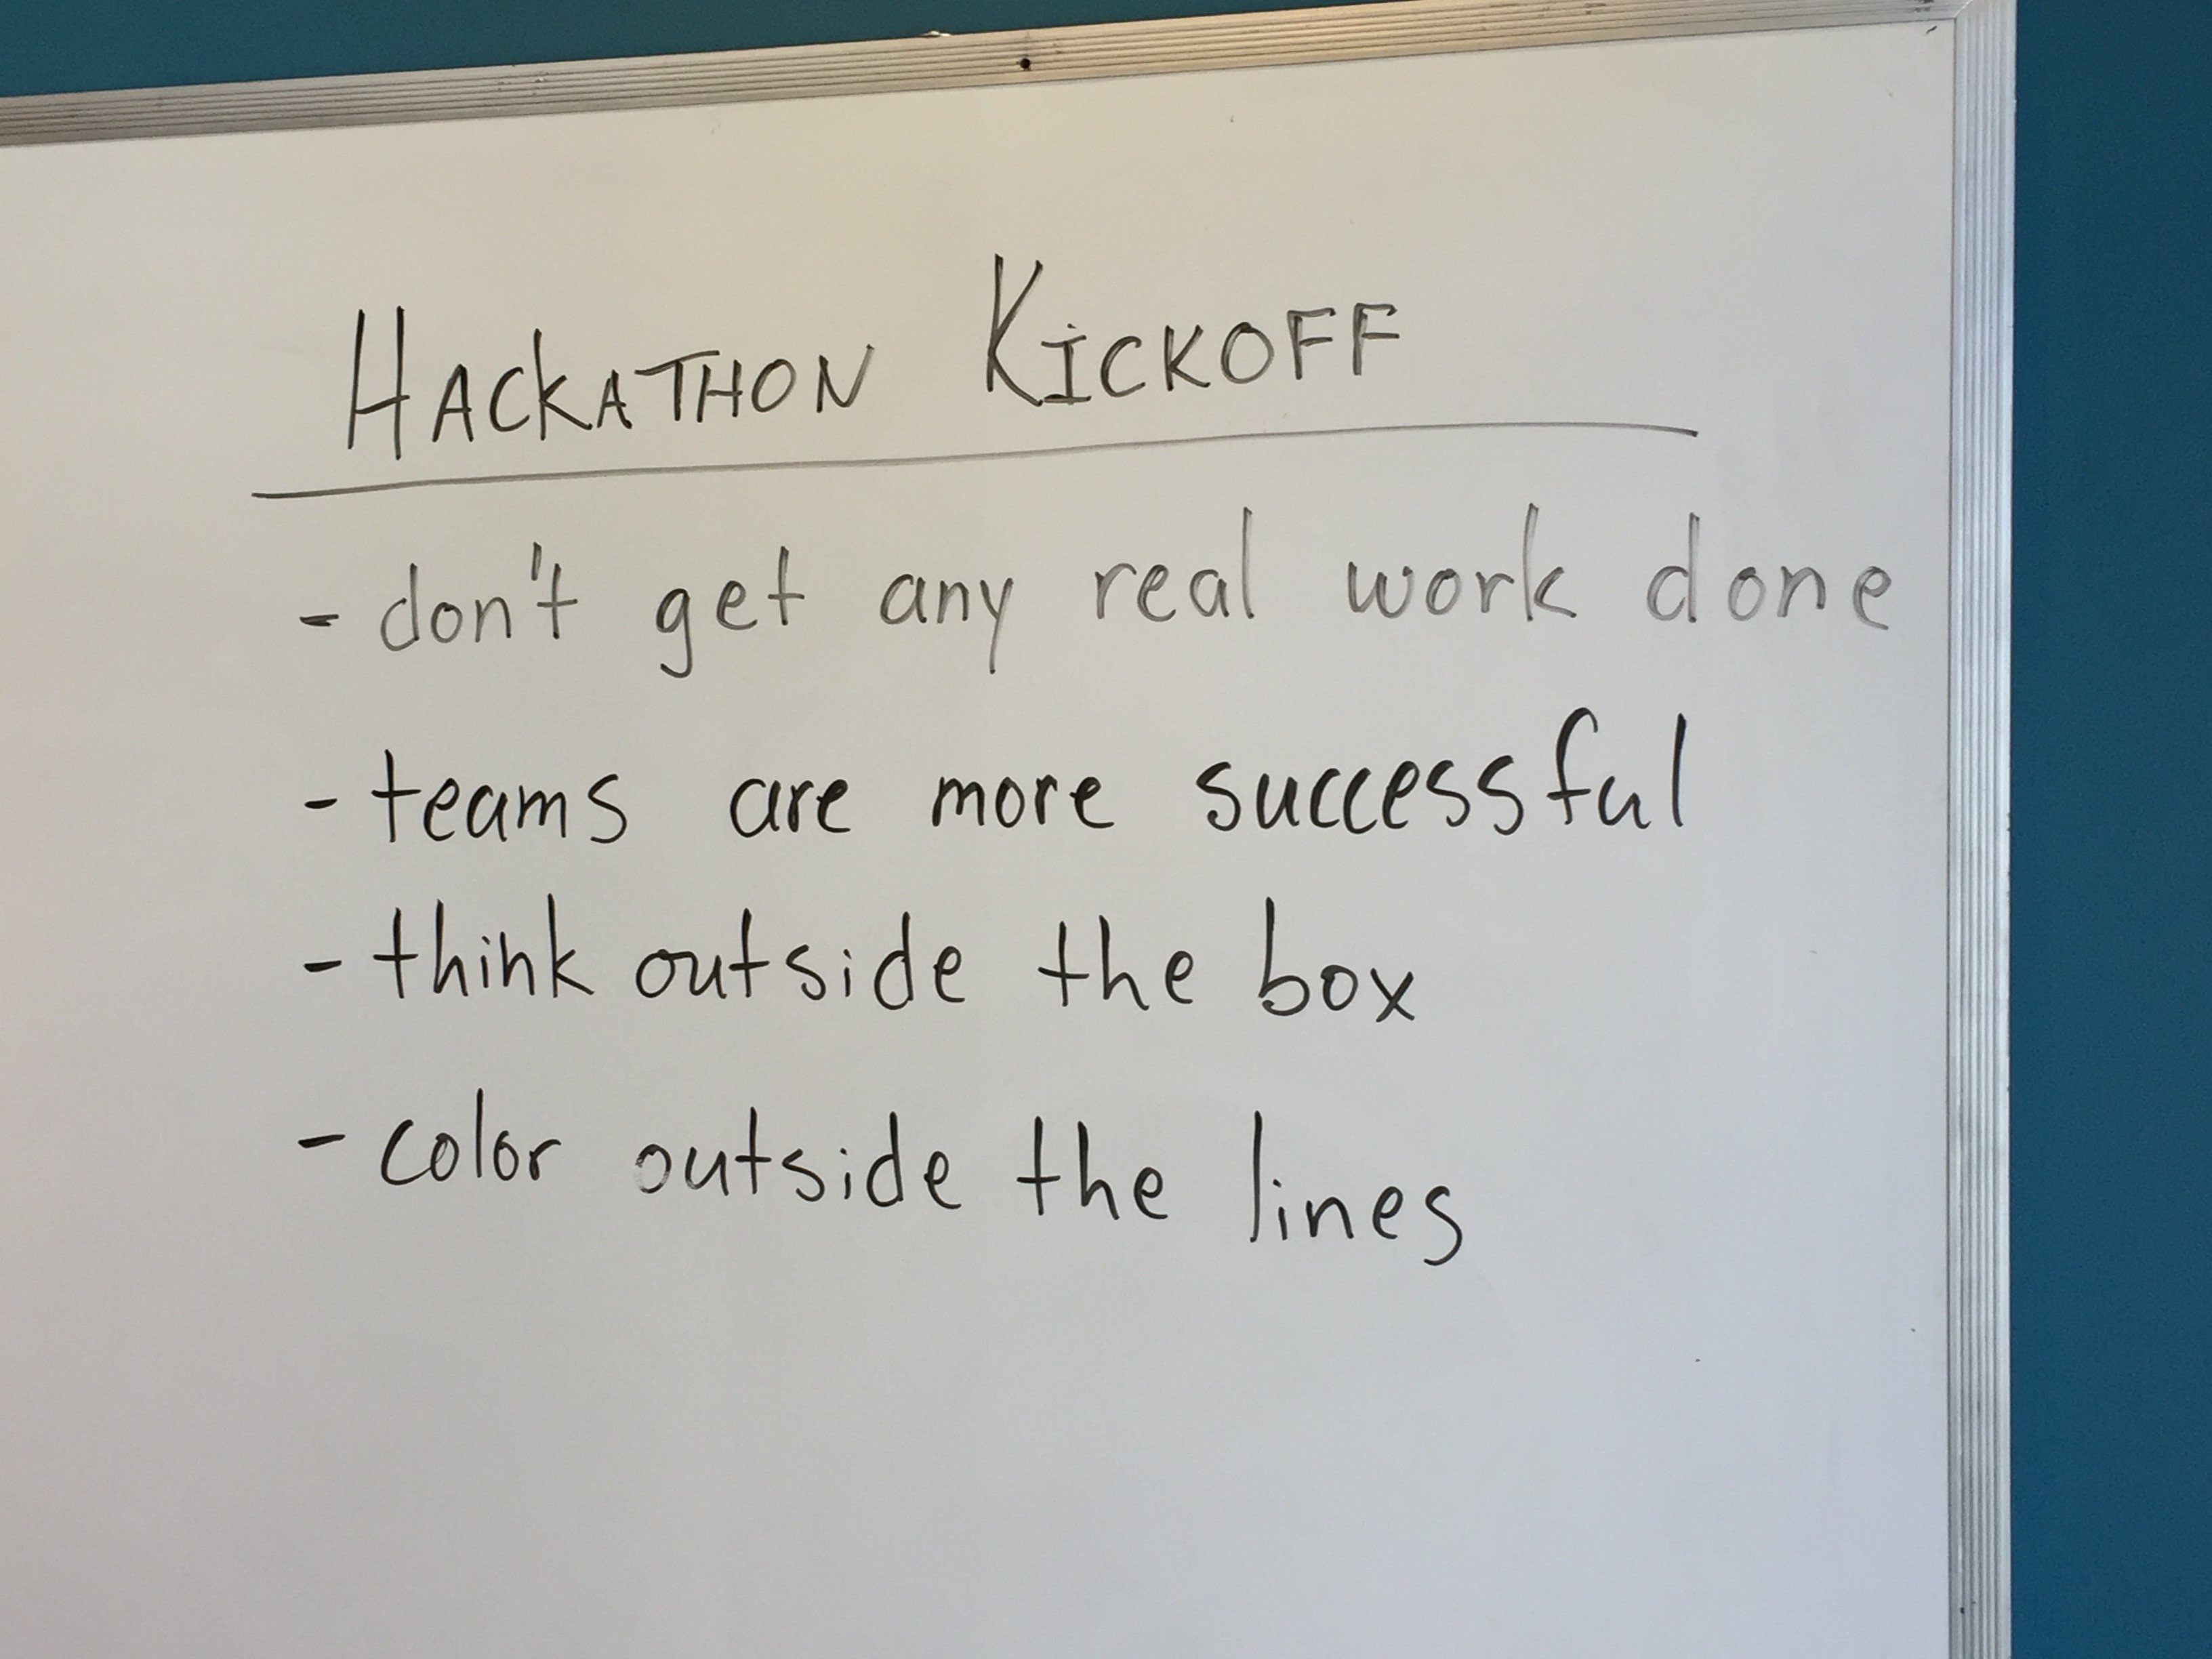 HACKATHON KICKOFF
- don't get any real work done
- teams are more successful
- think outside the box
- color outside the lines